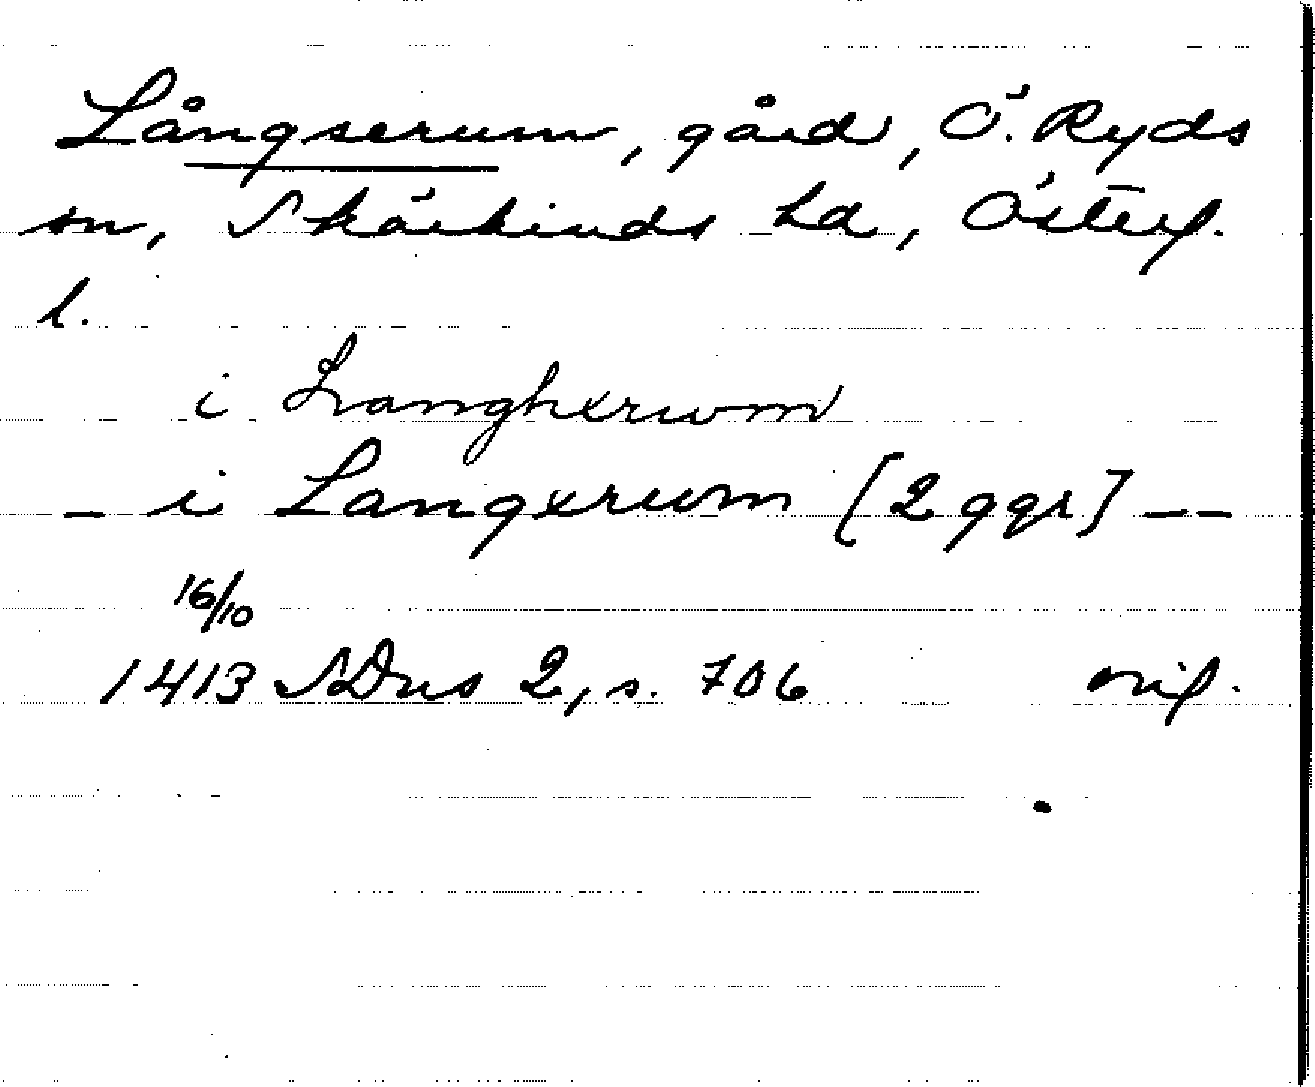 Långserum, gård, Ö. Ryds
sn, Skärkinds hd, Österg.
l.
i Langhxrwm
— i Langxrwm [2 ggr] — —
16/10
1413 SDns 2, s. 706 orig.